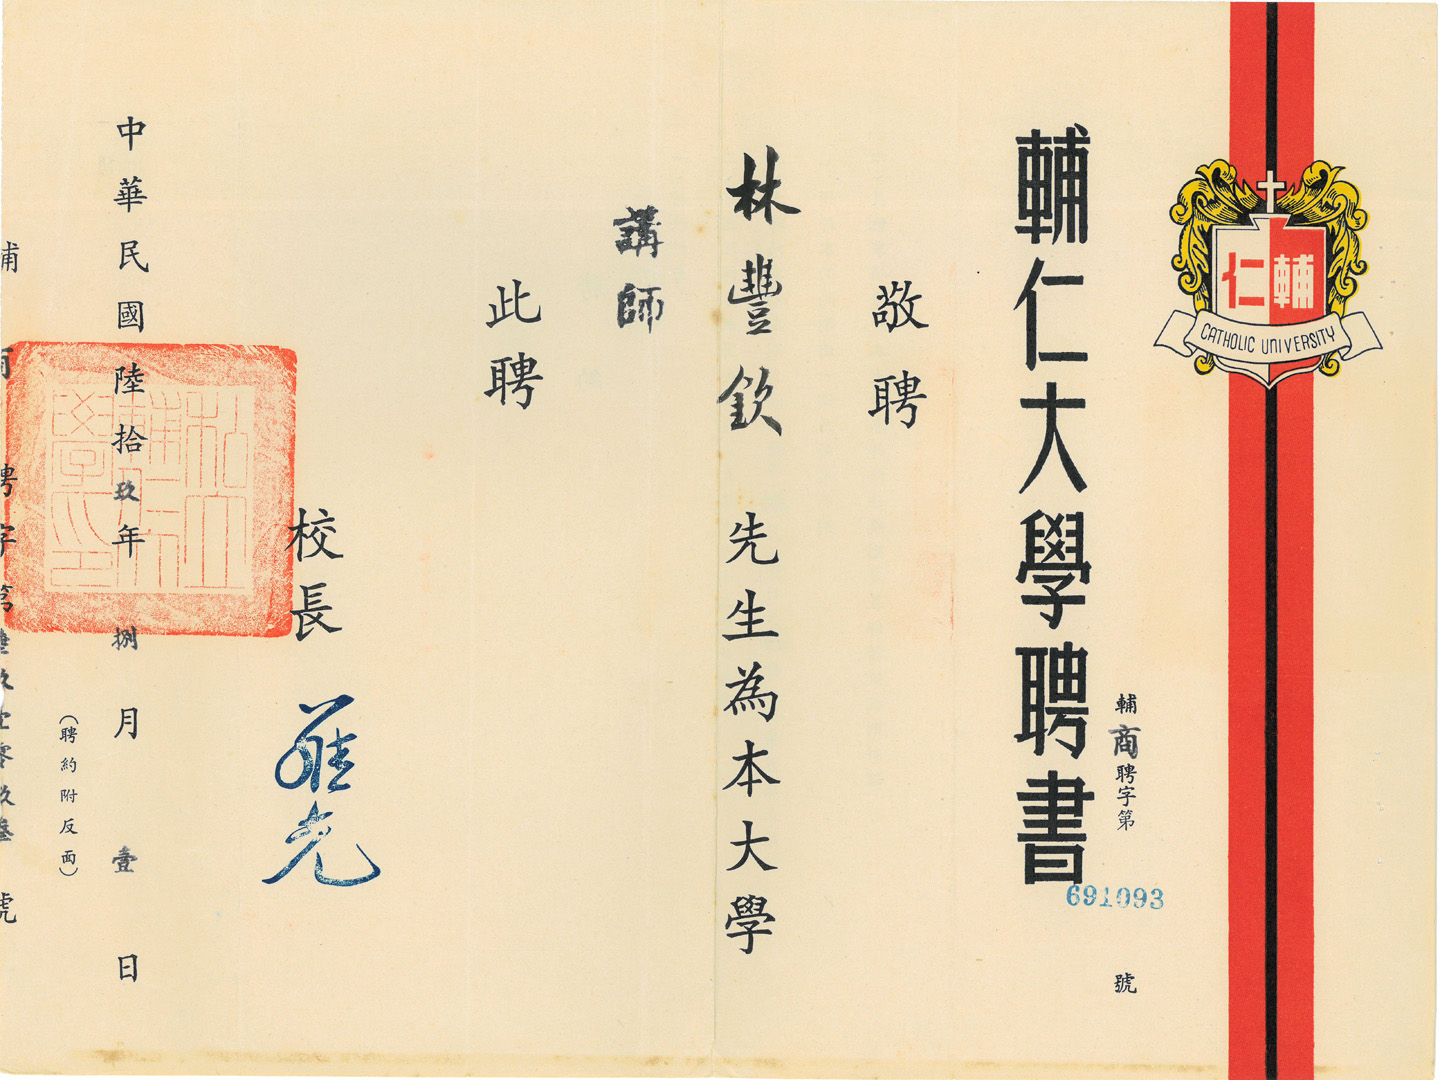 輔仁
CATHOLIC UNIVERSITY
輔商聘字第691093號
輔仁大學聘書
敬聘
林豐欽先生為本大學
講師
此聘
校長 羅光
中華民國陸拾玖年捌月壹日
(聘約附反面)